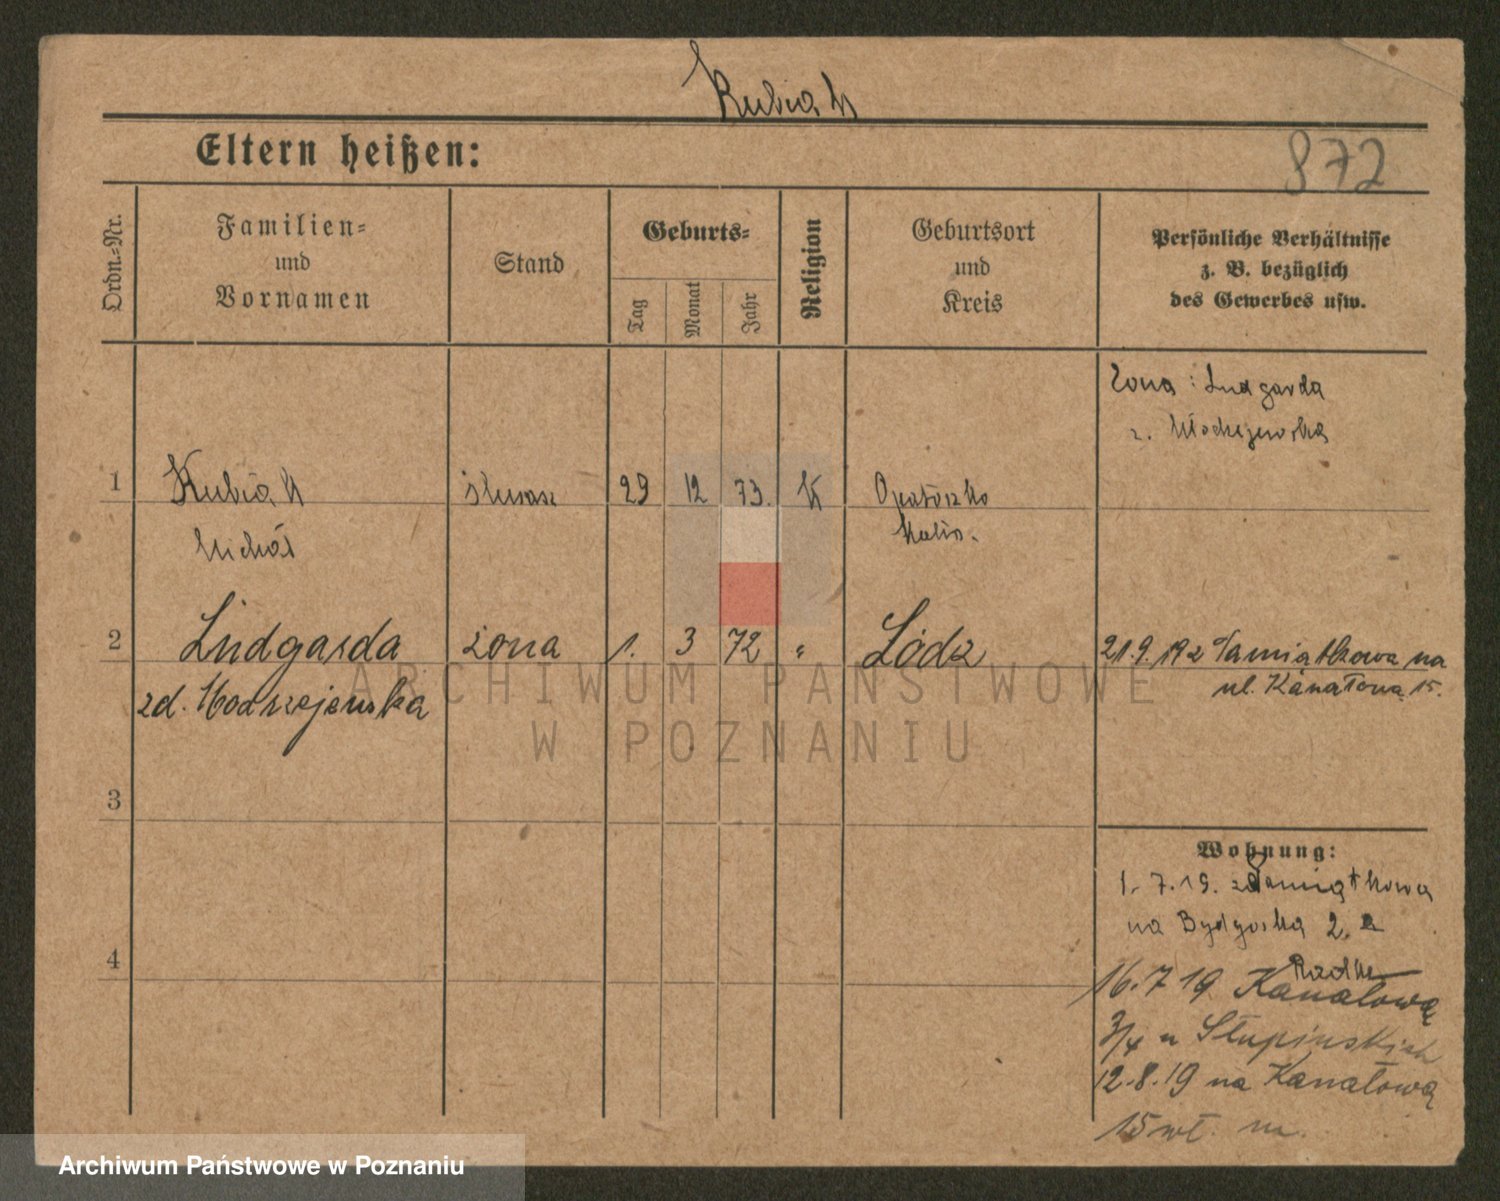 Kubiak
Eltern heißen:
872
Ordn.-Nr.
Familien-
und
Vornamen
Stand
Geburts-
Tag
Monat
Jahr
Religion
Geburtsort
und
Kreis
Persönliche Verhältnisse
z. B. bezüglich
des Gewerbes usw.
Żona: Ludgarda
z.
1 Kubiak ślusarz 29 12 73. K Opatówko
Michał Kalis.
2 Ludgarda żona 1. 3 72 " Łódź 21.9.192 Zamiątkowa na
zd. Modrzejewska ul. Kanałową 15.
3
Wohnung:
1.7.19. na Bydgoska 2.
4
16.7 19 Kanałową
3/4 u Słupińskich
12.8.19 na Kanałową
15 wł. m.
ARCHIWUM PAŃSTWOWE
W POZNANIU
Archiwum Państwowe w Poznaniu